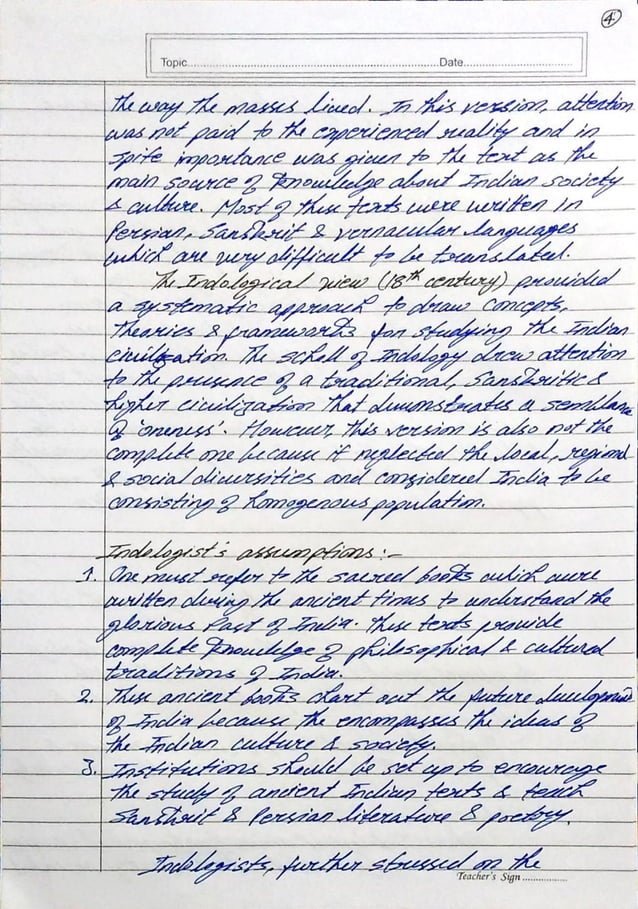 4
Topic........................Date........................
the way the masses lived. In this version, attention
was not paid to the experienced reality and in
spite importance was given to the text as the
main source of knowledge about Indian society
& culture. Most of these texts were written in
Persian, Sanskrit & vernacular languages
which are very difficult to be translated.
The Indological view (18th century) provided
a systematic approach to draw concepts,
theories & frameworks for studying the Indian
civilization. The scholl of Indology drew attention
to the presence of a traditional, Sanskritic &
higher civilization that demonstrates a semblance
of 'oneness'. However, this version is also not the
complete one because it neglected the local, regional
& social diversities and considered India to be
consisting of homogenous population.
Indologist's assumptions:-
1. One must refer to the sacred books which were
written during the ancient times to understand the
glorious Past of India. These texts provide
complete knowledge of philosophical & cultural
traditions of India.
2. These ancient books chart out the future development
of India because the encompasses the ideas of
the Indian culture & society.
3. Institutions should be set up to encourage
the study of ancient Indian texts & teach
Sanskrit & Persian literature & poetory.
Indologists, further stressed on the
Teacher's Sign ................